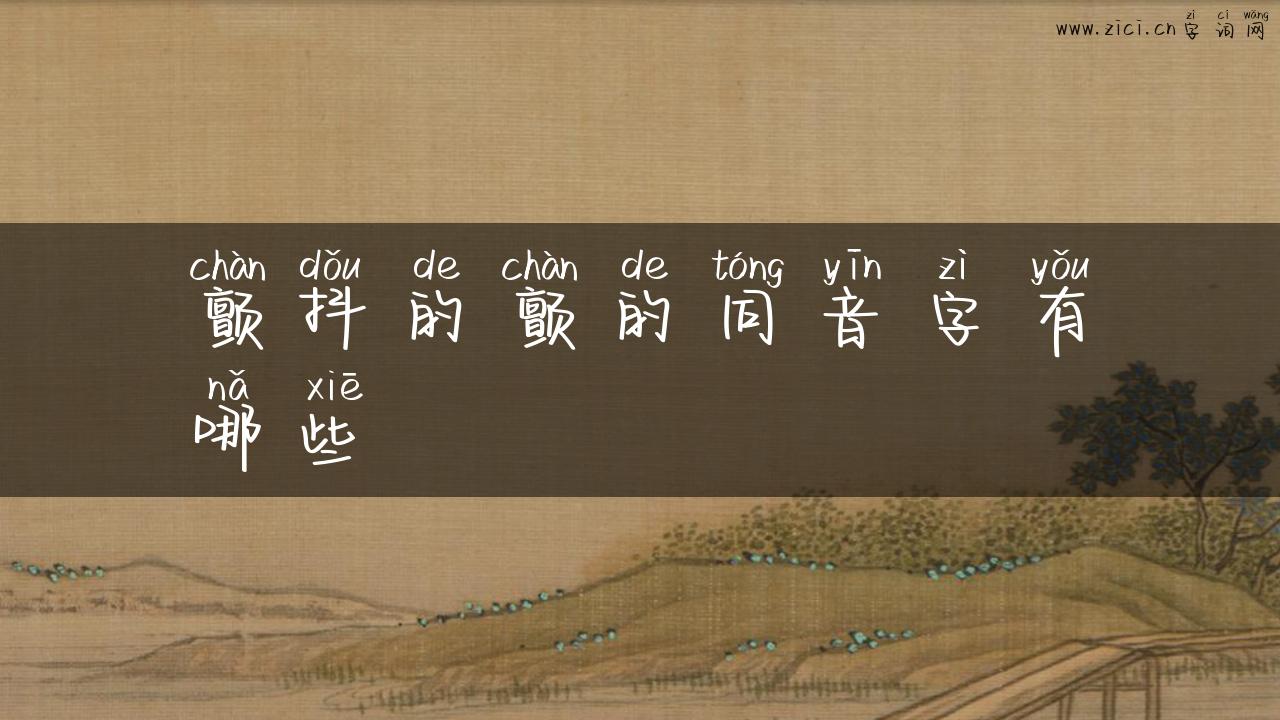 zì cí wǎng
www.zici.cn字词网
chàn dǒu de chàn de tóng yīn zì yǒu
颤抖的颤的同音字有
nǎ xiē
哪些